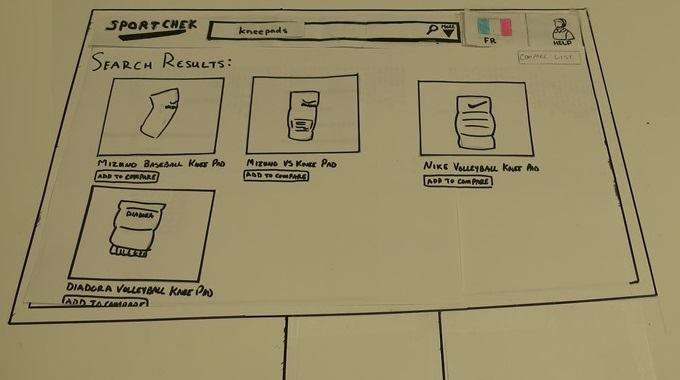 SPORTCHEK
kneepads
MORE
FR
HELP
COMPARE LIST
SEARCH RESULTS:
MIZUNO BASEBALL KNEE PAD
ADD TO COMPARE
MIZUNO VS KNEE PAD
ADD TO COMPARE
NIKE VOLLEYBALL KNEE PAD
ADD TO COMPARE
DIADORA
DIADORA VOLLEYBALL KNEE PAD
ADD TO COMPARE